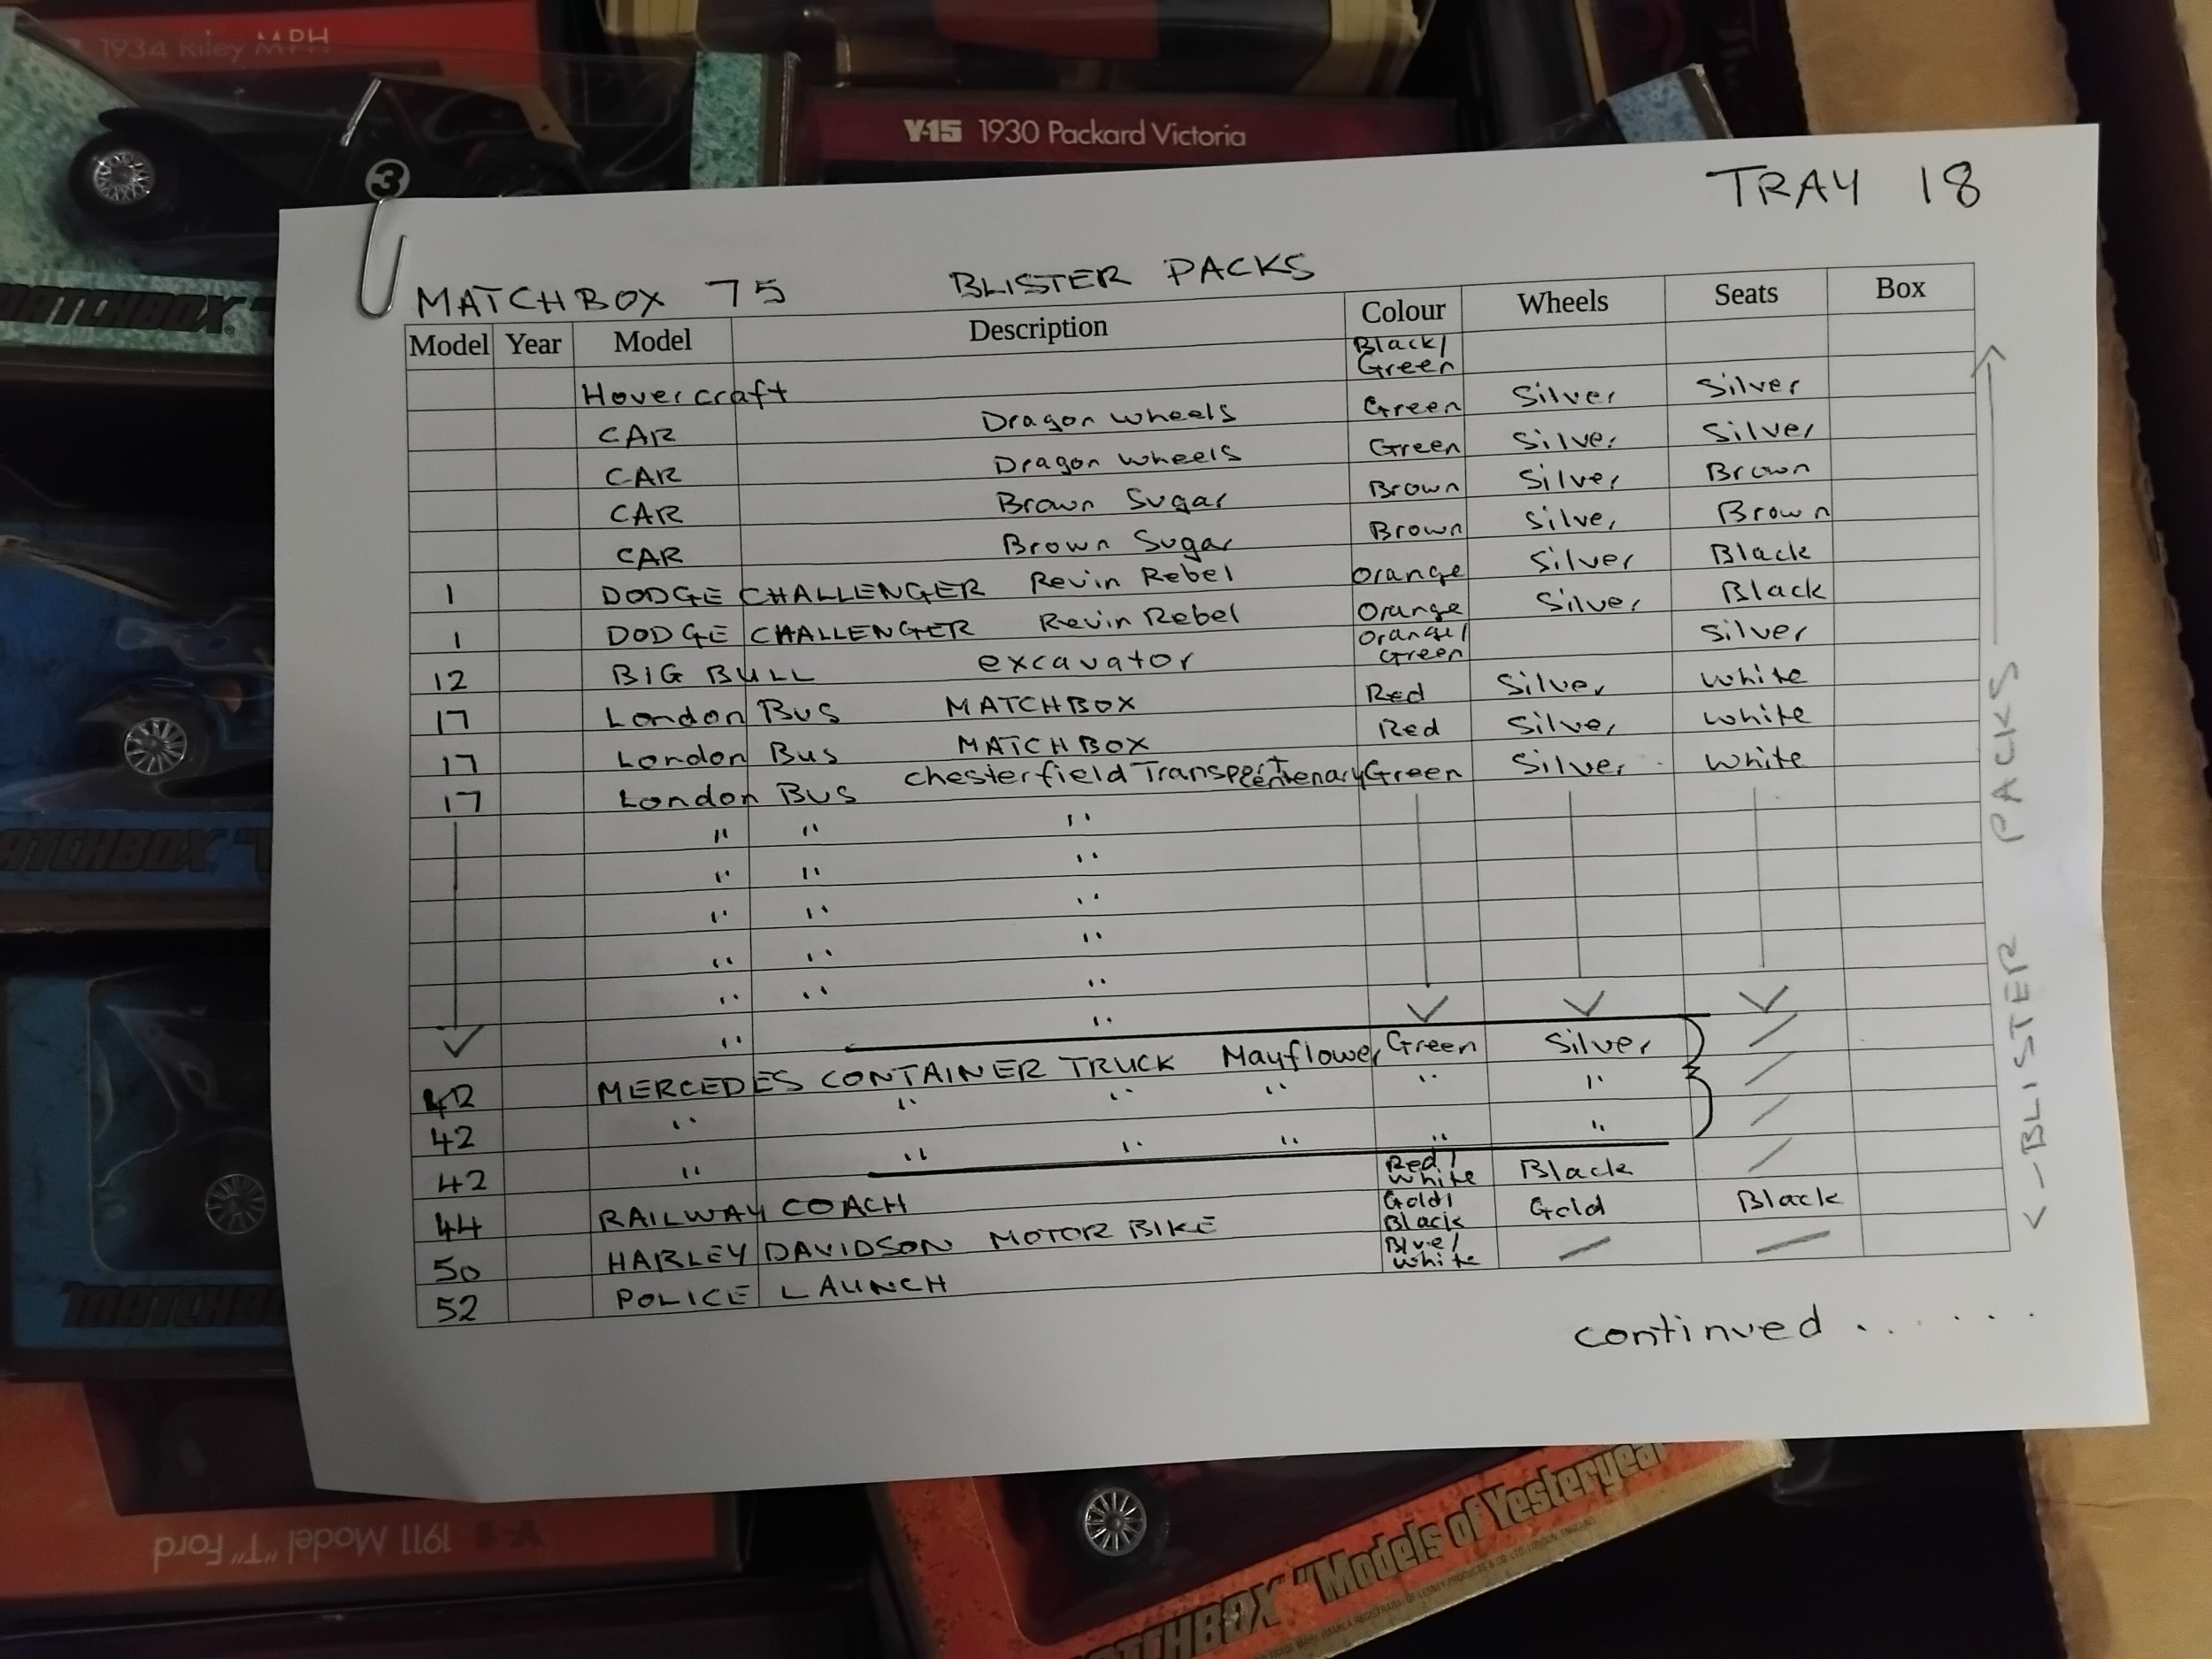 1934 Riley MPH
Y-15 1930 Packard Victoria
3
MATCHBOX
TRAY 18
MATCHBOX 75 BLISTER PACKS
Model Year Model Description Colour Wheels Seats Box
Hovercraft Black/ Green
CAR Dragon Wheels Green Silver Silver
CAR Dragon Wheels Green Silver Silver
CAR Brown Sugar Brown Silver Brown
CAR Brown Sugar Brown Silver Brown
1 DODGE CHALLENGER Revin Rebel Orange Silver Black
1 DODGE CHALLENGER Revin Rebel Orange Silver Black
12 BIG BULL excavator Orange/ Green Silver
17 London Bus MATCHBOX Red Silver White
17 London Bus MATCHBOX Red Silver White
17 London Bus Chesterfield Transport Centenary Green Silver White
" " "
" " "
" " "
" " "
" " "
" "
42 MERCEDES CONTAINER TRUCK Mayflower Green Silver /
42 " " " " " " /
42 " " " " " " /
44 RAILWAY COACH Red/ White Black /
50 HARLEY DAVIDSON MOTOR BIKE Gold/ Black Gold Black
52 POLICE LAUNCH Blue/ White / /
<- BLISTER PACKS ->
continued . . . . . .
MATCHBOX "
MATCHBO
1911 Model "T" Ford
MATCHBOX "Models of Yesteryear